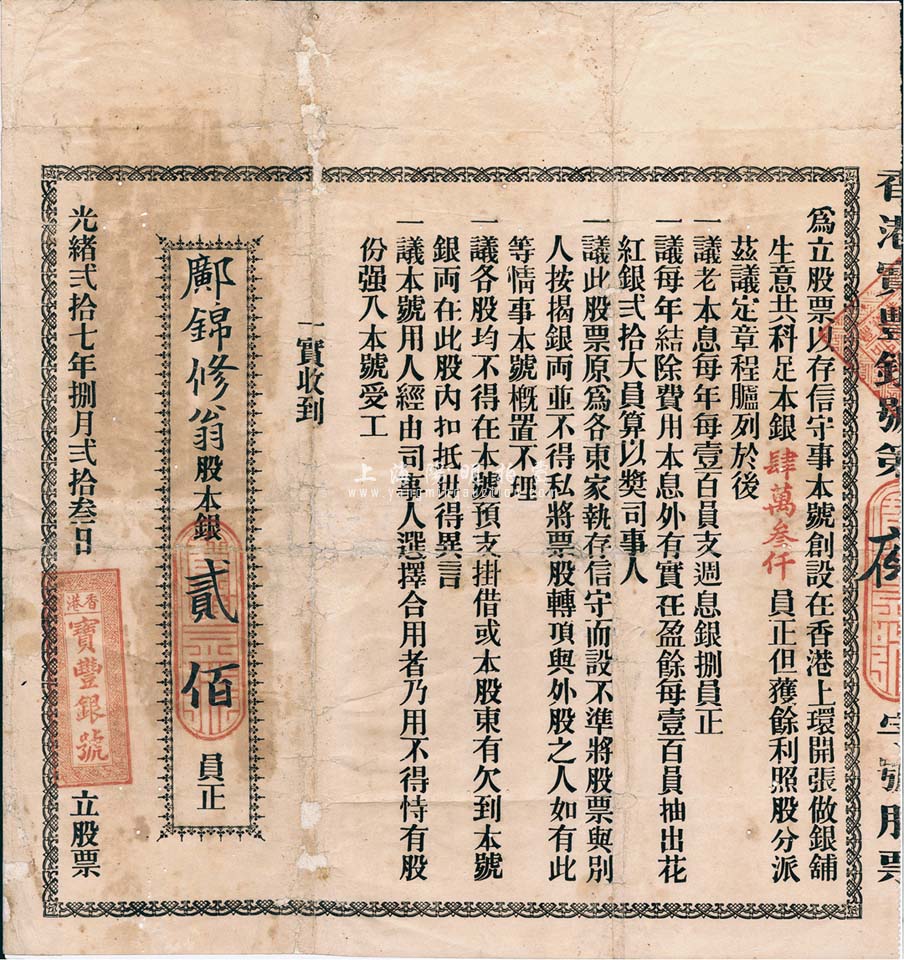 香港寶豐銀號第 字號股票
為立股票以存信守事本號創設在香港上環開張做銀舖
生意共科足本銀肆萬叁仟員正但獲餘利照股分派
茲議定章程臚列於後
一議老本息每年每壹百員支週息銀捌員正
一議每年結除費用本息外有實在盈餘每壹百員抽出花
紅銀弍拾大員算以獎司事人
一議此股票原為各東家執存信守而設不準將股票與別
人按揭銀両並不得私將票股轉項與外股之人如有此
等情事本號概置不理
一議各股均不得在本號預支掛借或本股東有欠到本號
銀両在此股內扣抵毋得異言
一議本號用人經由司事人選擇合用者乃用不得恃有股
份强入本號受工
一實收到
鄺錦修翁股本銀貳佰員正
光緒弍拾七年捌月弍拾叁日
香港
寶豐銀號
立股票
上海陽明拍賣